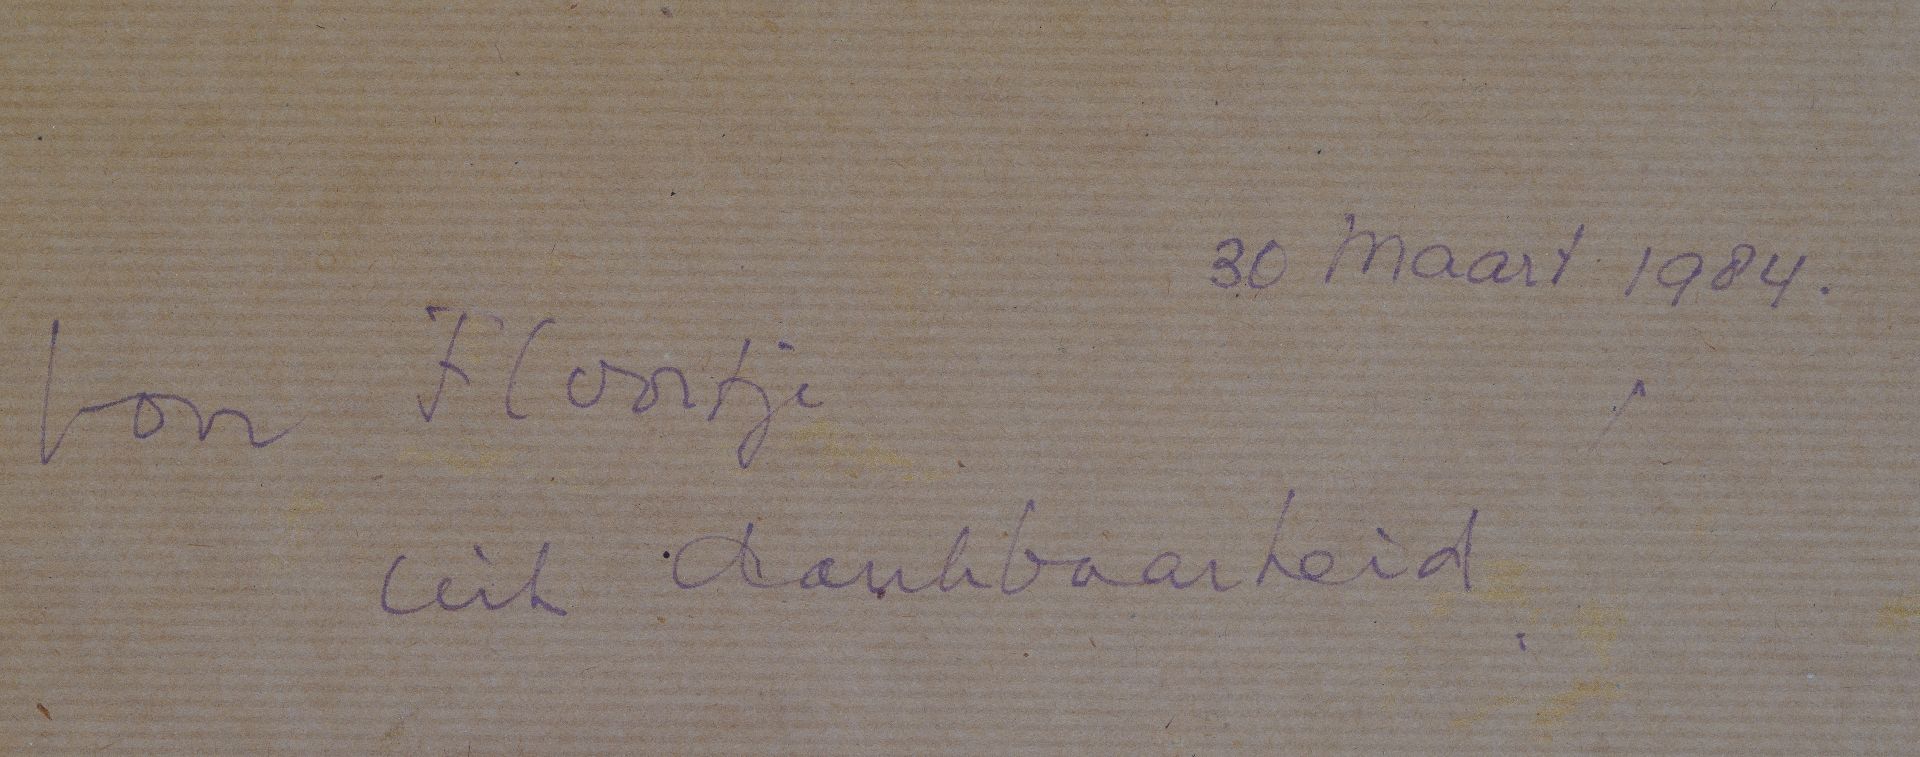 30 Maart 1984.
voor Floortje
uit dankbaarheid